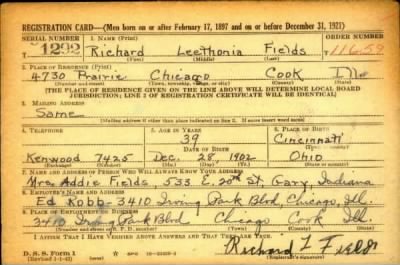 REGISTRATION CARD—(Men born on or after February 17, 1897 and on or before December 31, 1921)
SERIAL NUMBER 1. NAME (Print) ORDER NUMBER
1292 Richard Leethonia Fields 11659
(First) (Middle) (Last)
2. PLACE OF RESIDENCE (Print)
4730 Prairie Chicago Cook Ill
(Number and street) (Town, township, village, or city) (County) (State)
[THE PLACE OF RESIDENCE GIVEN ON THE LINE ABOVE WILL DETERMINE LOCAL BOARD
JURISDICTION; LINE 2 OF REGISTRATION CERTIFICATE WILL BE IDENTICAL]
3. MAILING ADDRESS
Same
[Mailing address if other than place indicated on line 2. If same insert word same]
4. TELEPHONE 5. AGE IN YEARS 6. PLACE OF BIRTH
39 Cincinnati
DATE OF BIRTH (Town or county)
Kenwood 7425 Dec. 28, 1902 Ohio
(Exchange) (Number) (Mo.) (Day) (Yr.) (State or country)
7. NAME AND ADDRESS OF PERSON WHO WILL ALWAYS KNOW YOUR ADDRESS
Mrs. Addie Fields, 533 E. 20th St, Gary, Indiana
8. EMPLOYER'S NAME AND ADDRESS
Ed Robb-3410 Irving Park Blvd, Chicago, Ill.
9. PLACE OF EMPLOYMENT OR BUSINESS
3410 Irving Park Blvd Chicago Cook Ill.
(Number and street or R. F. D. number) (Town) (County) (State)
I AFFIRM THAT I HAVE VERIFIED ABOVE ANSWERS AND THAT THEY ARE TRUE.
D. S. S. Form 1 Richard L Fields
(Revised 1-1-42) (over) (Registrant's signature)